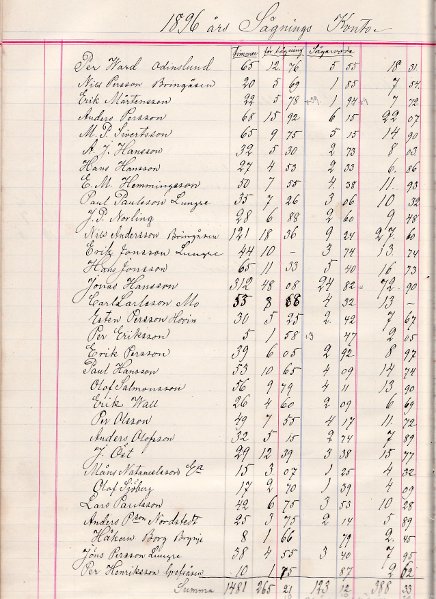 1896 års Sågnings Konto
Timmer för Sågning Sågarvärde
Per Ward Odenslund 65 12 76 5 55 18 31
Nils Persson Bomgåsen 20 5 69 1 85 7 54
Erik Mårtensson 22 5 78 1 94 7 72
Anders Persson 65 15 92 6 15 22 07
M. P. Sivertsson 65 9 75 5 15 14 90
A. J. Hansson 32 5 30 2 73 8 03
Hans Hansson 27 4 53 2 33 6 86
E. M. Hemmingsson 50 7 55 4 38 11 93
Paul Paulsson Lungre 35 7 26 3 06 10 32
J. P. Norling 28 6 88 2 60 9 48
Nils Andersson Bomgåsen 121 18 36 9 24 27 60
Erik Jonsson Lungre 44 10 – 3 74 13 74
Hans Jonsson 65 11 33 5 40 16 73
Jonas Hansson 312 48 08 24 82 72 90
Carl Carlsson Mo 55 8 68 4 32 13 –
Esten Persson Hovin 30 5 25 2 42 7 67
Per Eriksson 5 1 58 47 2 05
Erik Persson 39 6 05 2 92 8 97
Paul Hansson 53 10 65 4 09 14 74
Olof Salmonsson 56 9 79 4 11 13 90
Erik Wall 26 4 60 2 09 6 69
Per Olsson 49 7 55 4 17 11 72
Anders Olofsson 32 5 15 2 74 7 89
J. Ost 29 12 39 3 38 15 77
Måns Natanaelsson Ea 15 3 07 1 25 4 32
Olof Sjöberg 17 2 70 1 39 4 09
Lars Paulsson 42 6 75 3 53 10 28
Anders Pson Nordstedt 25 3 75 2 14 5 89
Håkan Borg 8 1 66 79 2 45
Jöns Persson Lungre 38 4 55 3 40 7 95
Per Henriksson 10 1 75 87 2 62
Summa 1481 265 21 123 12 388 33